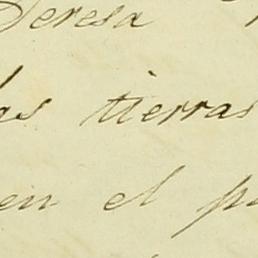 Teresa
las tierras
en el